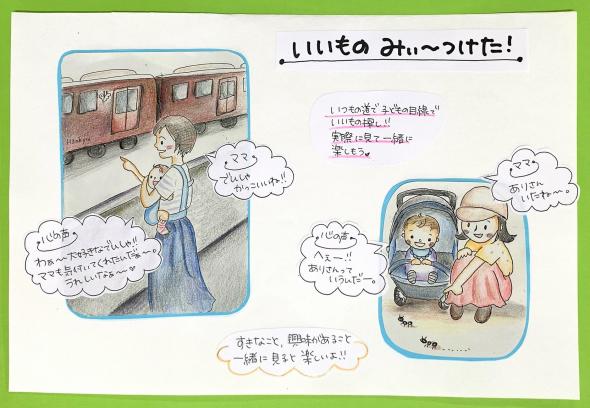 いいもの みぃ〜つけた!
いつもの道で子どもの目線で
いいもの探し!!
実際に見て一緒に
楽しもう♥
Hankyu
ママ
でんしゃ
かっこいいね!!
心の声
わぁ〜大好きなでんしゃ!!
ママも気付いてくれたんだぁ〜。
うれしいなぁ〜♡
ママ
ありさん
いたね〜。
心の声
へぇー!!
ありさんって
いうんだー。
すきなこと、興味があること
一緒に見ると楽しいよ!!